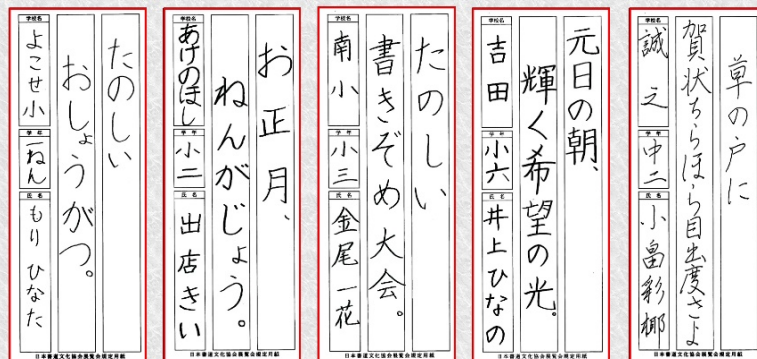 たのしい
おしょうがつ。
学校名
よこせ小
学年
一ねん
氏名
もりひなた
お正月、
ねんがじょう。
学校名
あけのほし
学年
小二
氏名
出店きい
日本書道文化協会展覧会規定用紙
たのしい
書きぞめ大会。
学校名
南小
学年
小三
氏名
金尾一花
日本書道文化協会展覧会規定用紙
元日の朝、
輝く希望の光。
学校名
吉田
学年
小六
氏名
井上ひなの
日本書道文化協会展覧会規定用紙
草の戸に
賀状ちらほら目出度さよ
学校名
誠之
学年
中二
氏名
小畠彩椰
日本書道文化協会展覧会規定用紙